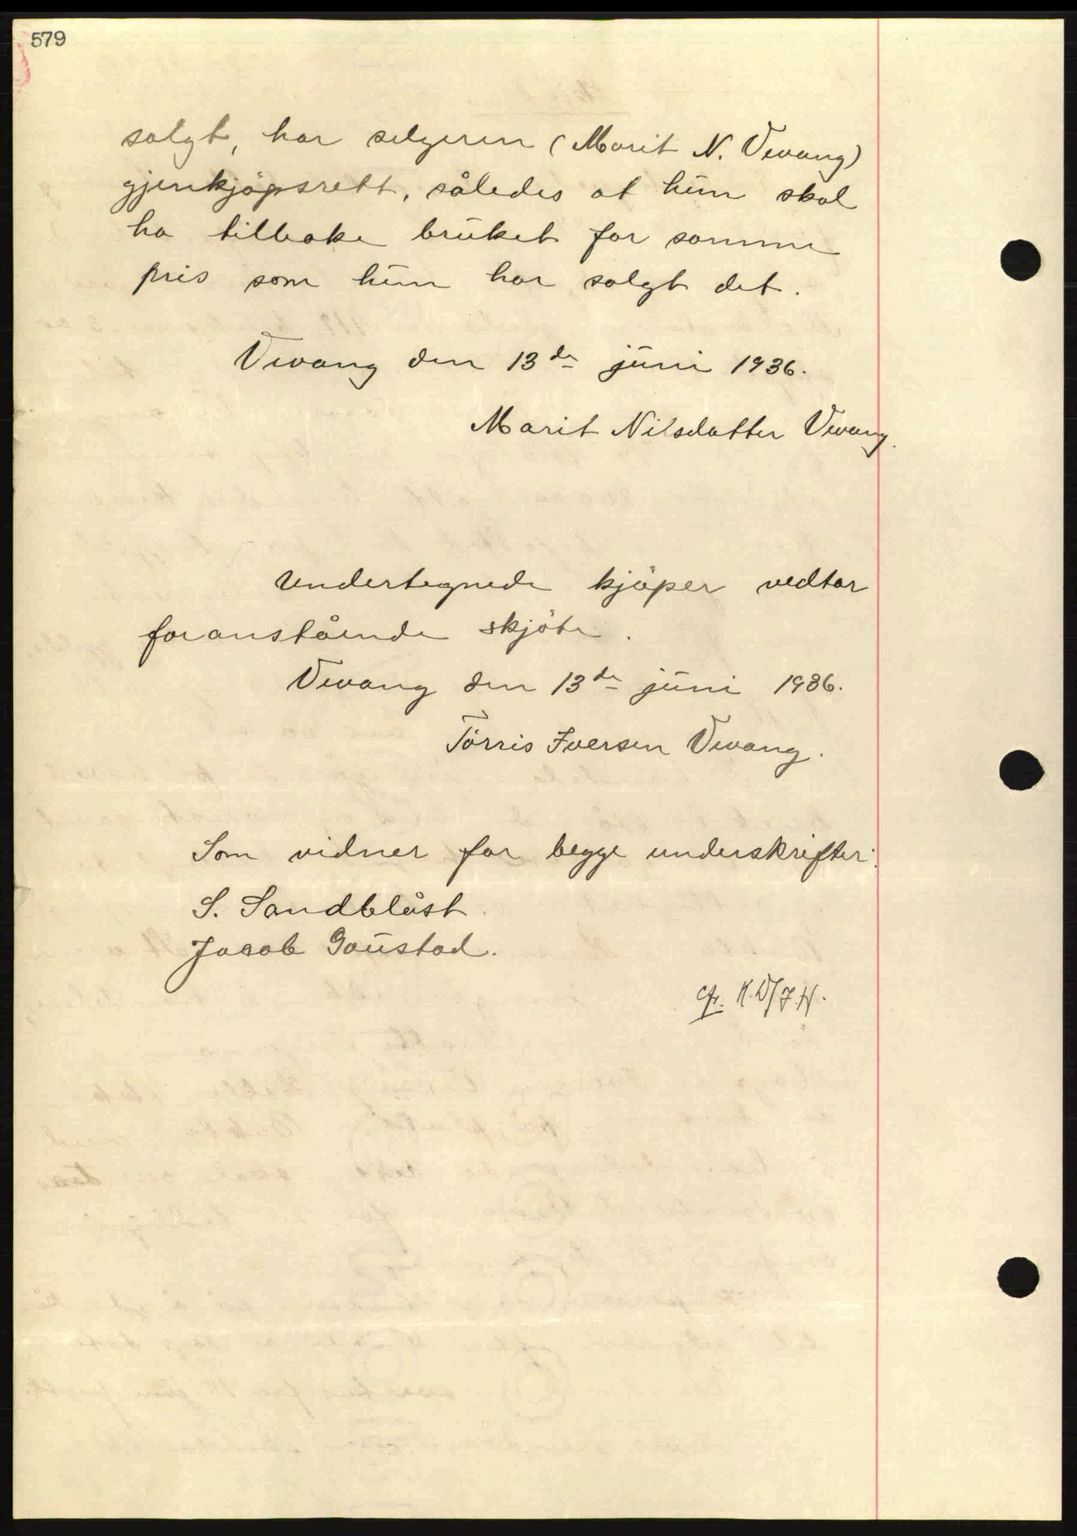 579
solgt, har selgeren (Marit N. Vevang)
gjenkjöpsrett, således at hun skal
ha tilbake bruket for samme
pris som hun har solgt det.
Vevang den 13de juni 1936.
Marit Nilsdatter Vevang.
Undertegnede kjöper vedtar
foranstående skjöte.
Vevang den 13de juni 1936.
Törris Iversen Vevang.
Som vidner for begge underskrifter:
S. Sandblåst.
Jacob Gaustad.